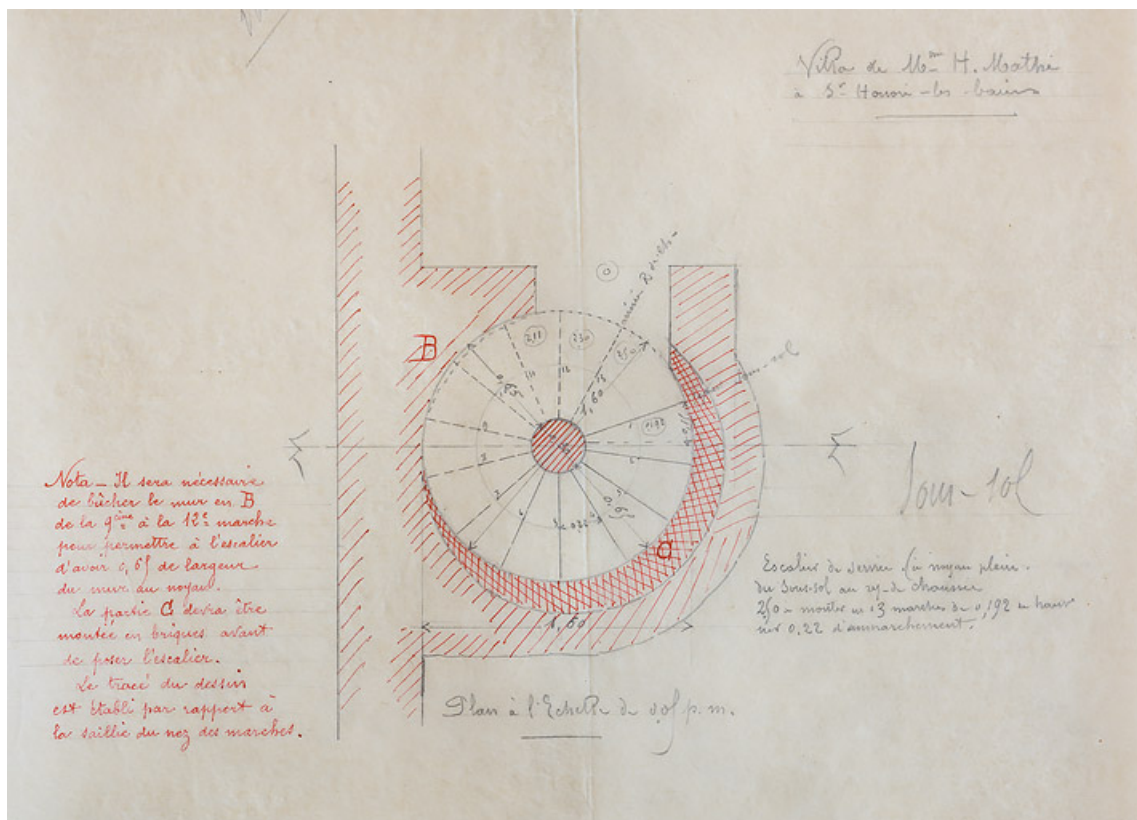 Villa de Mme H. Mathé
à St Honoré-les-bains
B
0
211
230
250
0,65
1,60
11
12
13
1
0192
9
8
6
5
0,65
C
Sous-sol
Nota – Il sera nécessaire
de bûcher le mur en B
de la 9ème à la 12e marche
pour permettre à l'escalier
d'avoir 0,65 de largeur
du mur au noyau.
La partie C devra être
montée en briques avant
de poser l'escalier.
Le tracé du dessin
est établi par rapport à
la saillie du nez des marches.
Escalier de service (à noyau plein.
du Sous-sol au rez-de chaussée
250 à monter en 13 marches de 0,192 de haut
sur 0,22 d'emmarchement.
1,60
Plan à l'Echelle de 0,05 p.m.